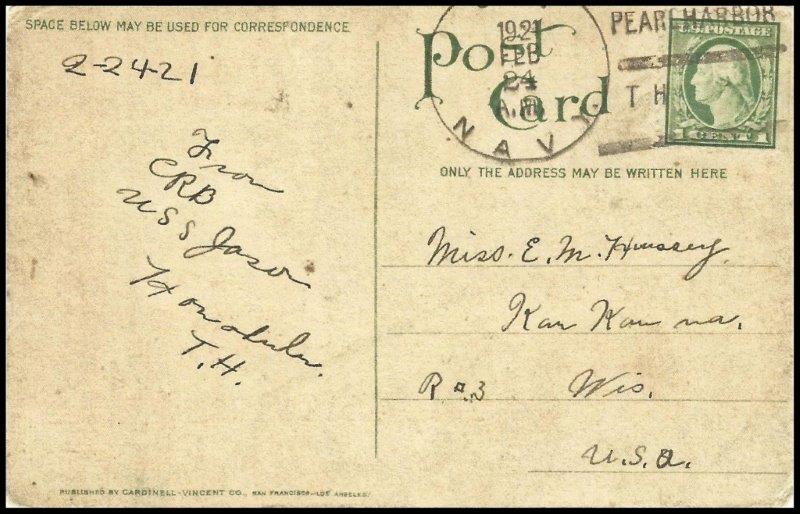 SPACE BELOW MAY BE USED FOR CORRESPONDENCE
2-24-21
From
CRB
USS Jason
Honolulu.
T.H.
PUBLISHED BY CARDINELL-VINCENT CO., SAN FRANCISCO-LOS ANGELES
Post
Card
1921
FEB
24
A.M.
NAVY
PEARL HARBOR
T H
U.S. POSTAGE
1 CENT 1
ONLY THE ADDRESS MAY BE WRITTEN HERE
Miss. E. M. Hussey.
Kau Kau na.
R #3 Wis.
U.S.A.